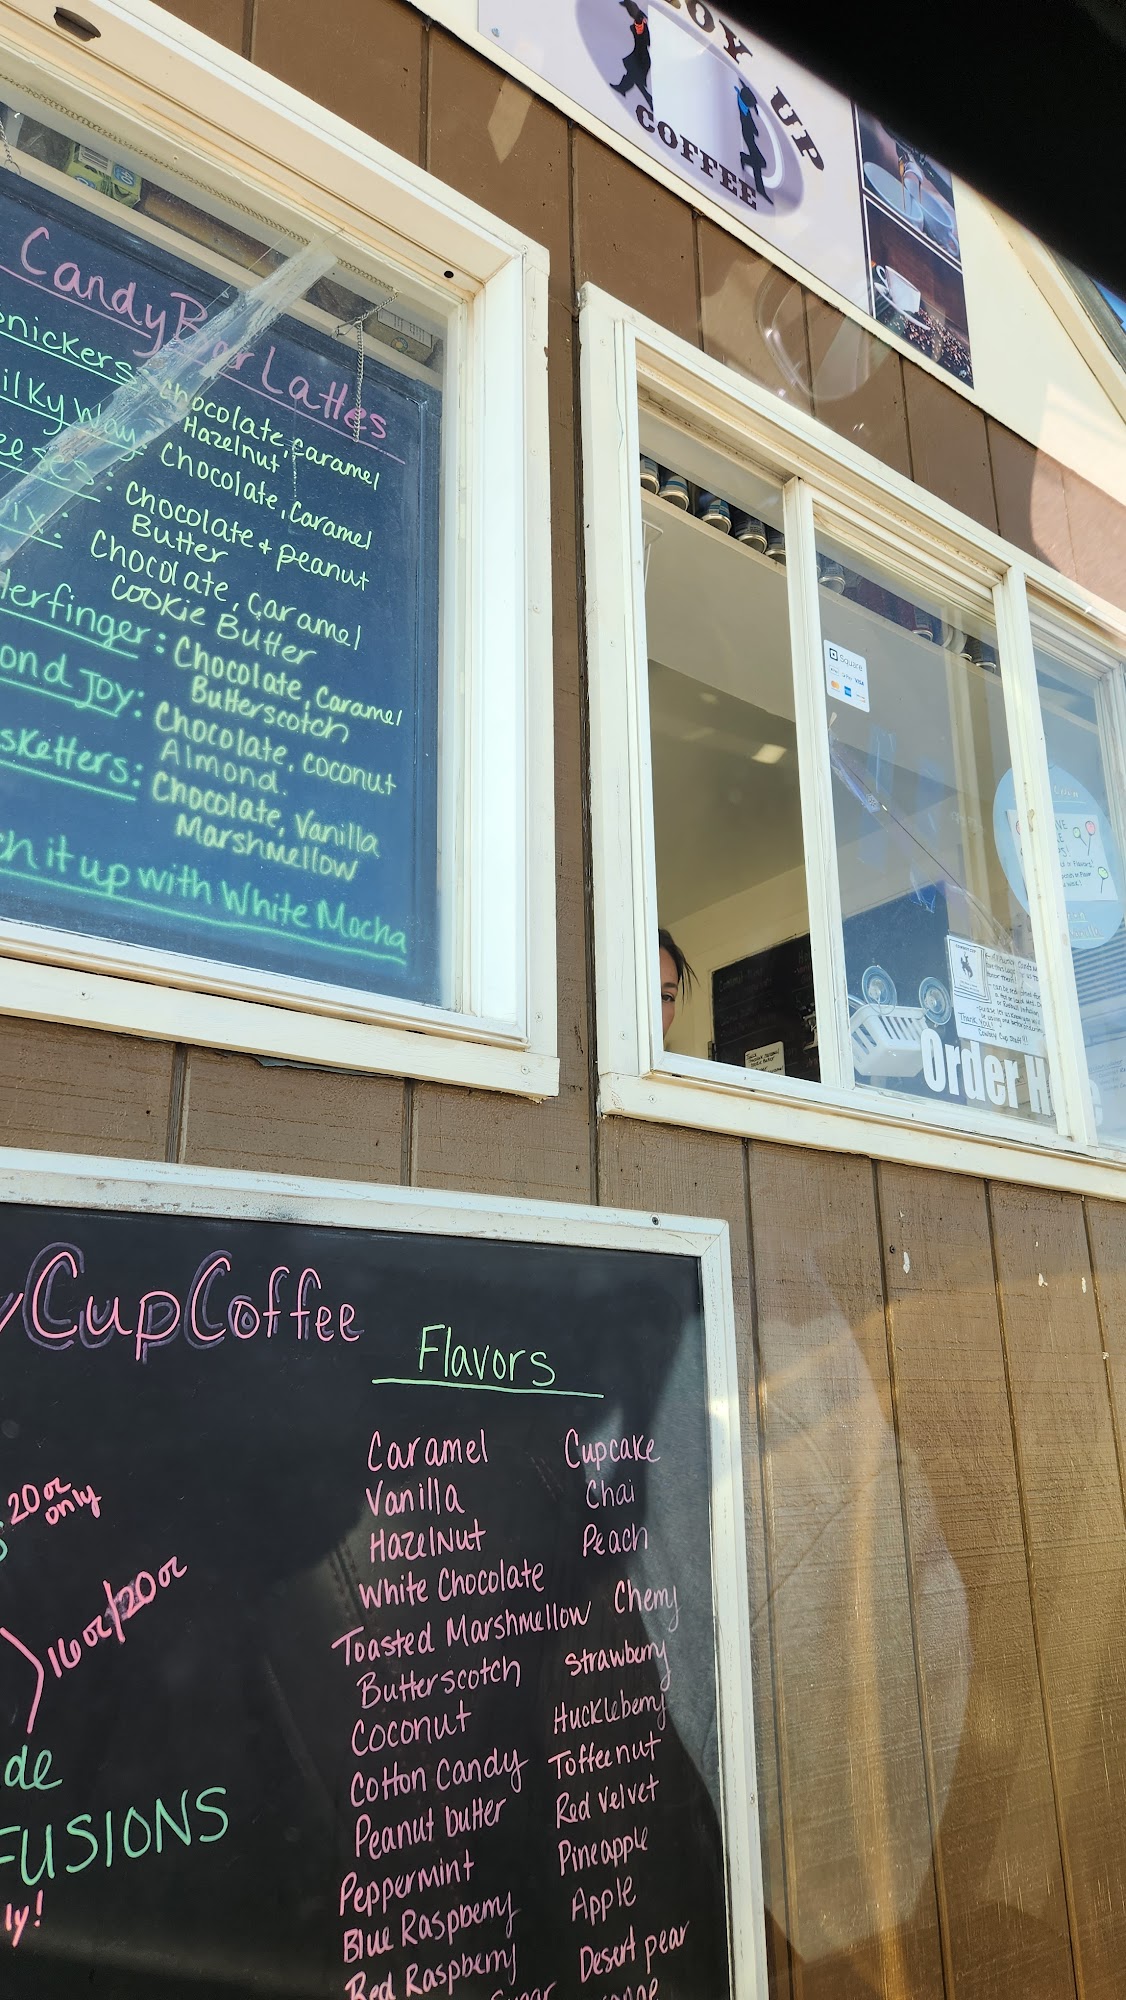 OY UP
COFFEE
Candy Bar Lattes
nickers: Chocolate, caramel
Hazelnut
ilky Way: Chocolate, caramel
eeses: Chocolate + peanut
Butter
ix: Chocolate, caramel
Cookie Butter
terfinger: Chocolate, caramel
Butterscotch
ond Joy: Chocolate, coconut
Almond.
sketters: Chocolate, Vanilla
Marshmellow
ch it up with White Mocha
Square
VISA
Thank You!
Order H e
y Cup Coffee
Flavors
Caramel
Vanilla
Hazelnut
White Chocolate
Toasted Marshmellow
Butterscotch
Coconut
Cotton Candy
Peanut butter
Peppermint
Blue Raspberry
Red Raspberry
Sugar
Cupcake
Chai
Peach
Cherry
Strawberry
Huckleberry
Toffeenut
Red Velvet
Pineapple
Apple
Desert pear
20oz
only
16oz/20oz
de
FUSIONS
ly!